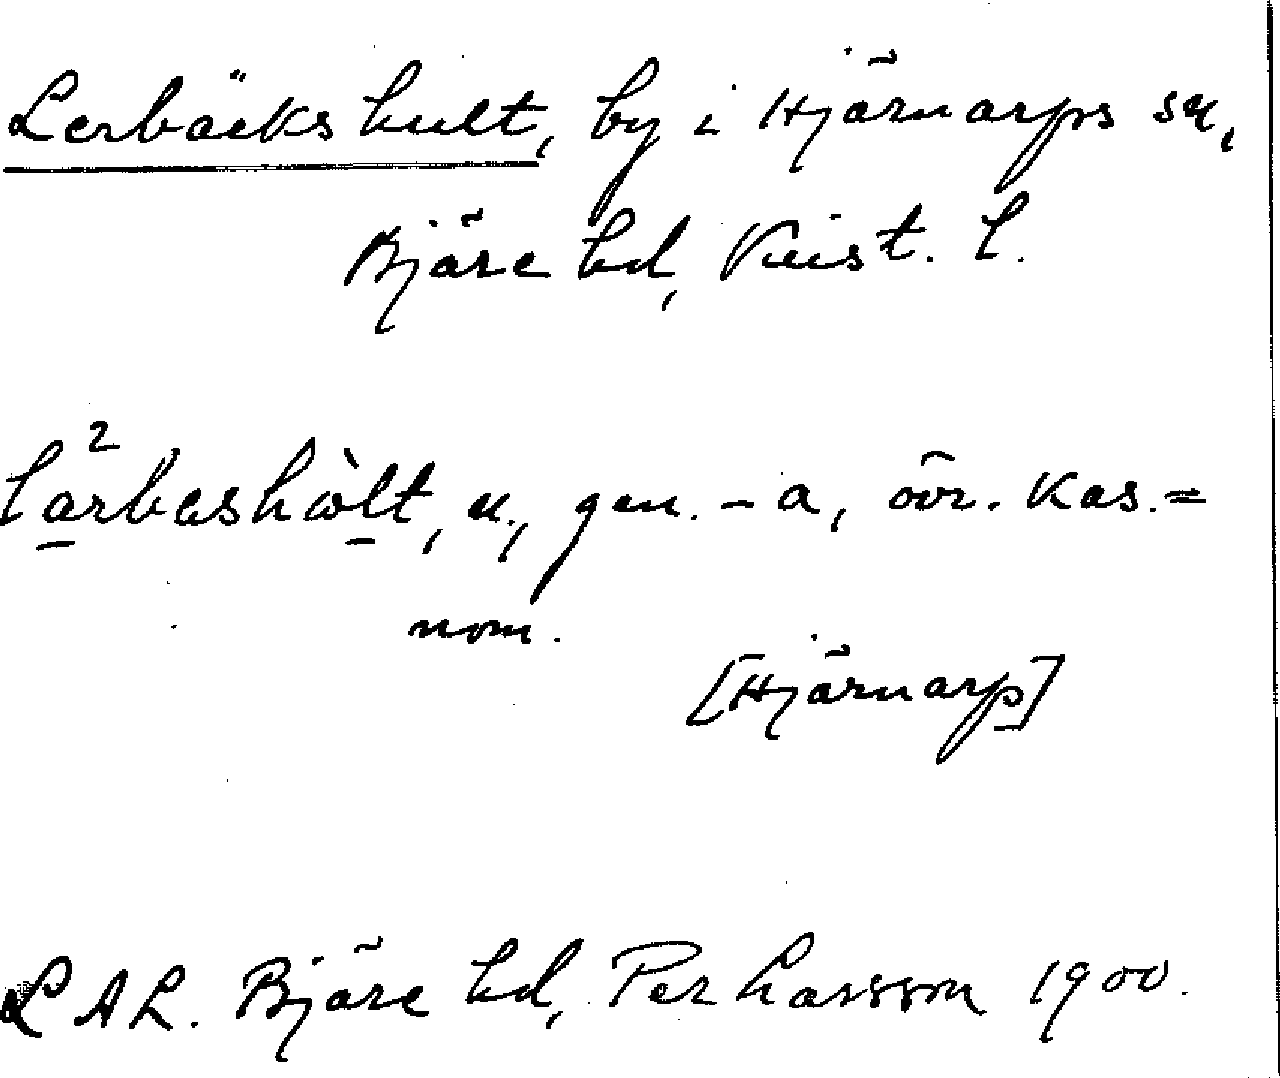 Lerbäckshult, by i Hjärnarps sn,
Bjäre hd, Krist. l.
larbashòlt, n., gen. -a, övr. kas. =
nom.
[Hjärnarp]
LAL. Bjäre hd, Per Larsson 1900.